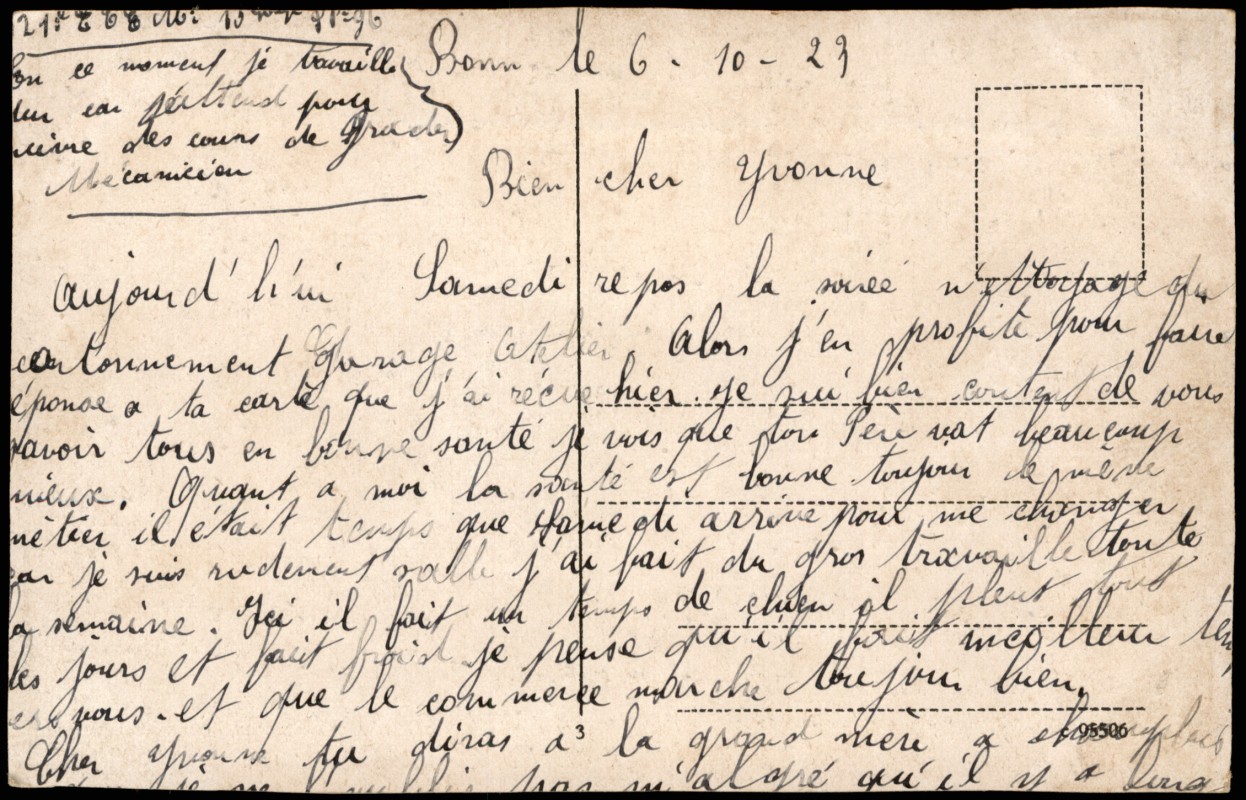 En ce moment je travaille
dur car j'attend pour
suivre des cours de grader
Mécanicien
Bonn le 6 - 10 - 23
Bien cher Yvonne
Aujourd'h'ui Samedi repos la soirée néttoyage du
cantonnement Garage Atelier. Alors j'en profite pour faire
éponse a ta carte que j'ai récue hier. je sui bien content de vous
savoir tous en bonne santé je vois que ton Père vat beaucoup
mieux. Quant a moi la santé est bonne toujour le même
métier il était temps que Samedi arrive pour me changer
car je suis rudement salle j'ai fait du gros travaille toute
la semaine. Ici il fait un temps de chien il pleut tout
les jours et fait froid je pense qu'il fait meilleur tem
vous. et que le commerce marche toujour bien.
Cher Yvonne tu diras a la grand mère a
pas m'algré qu'il y a long
3
95506